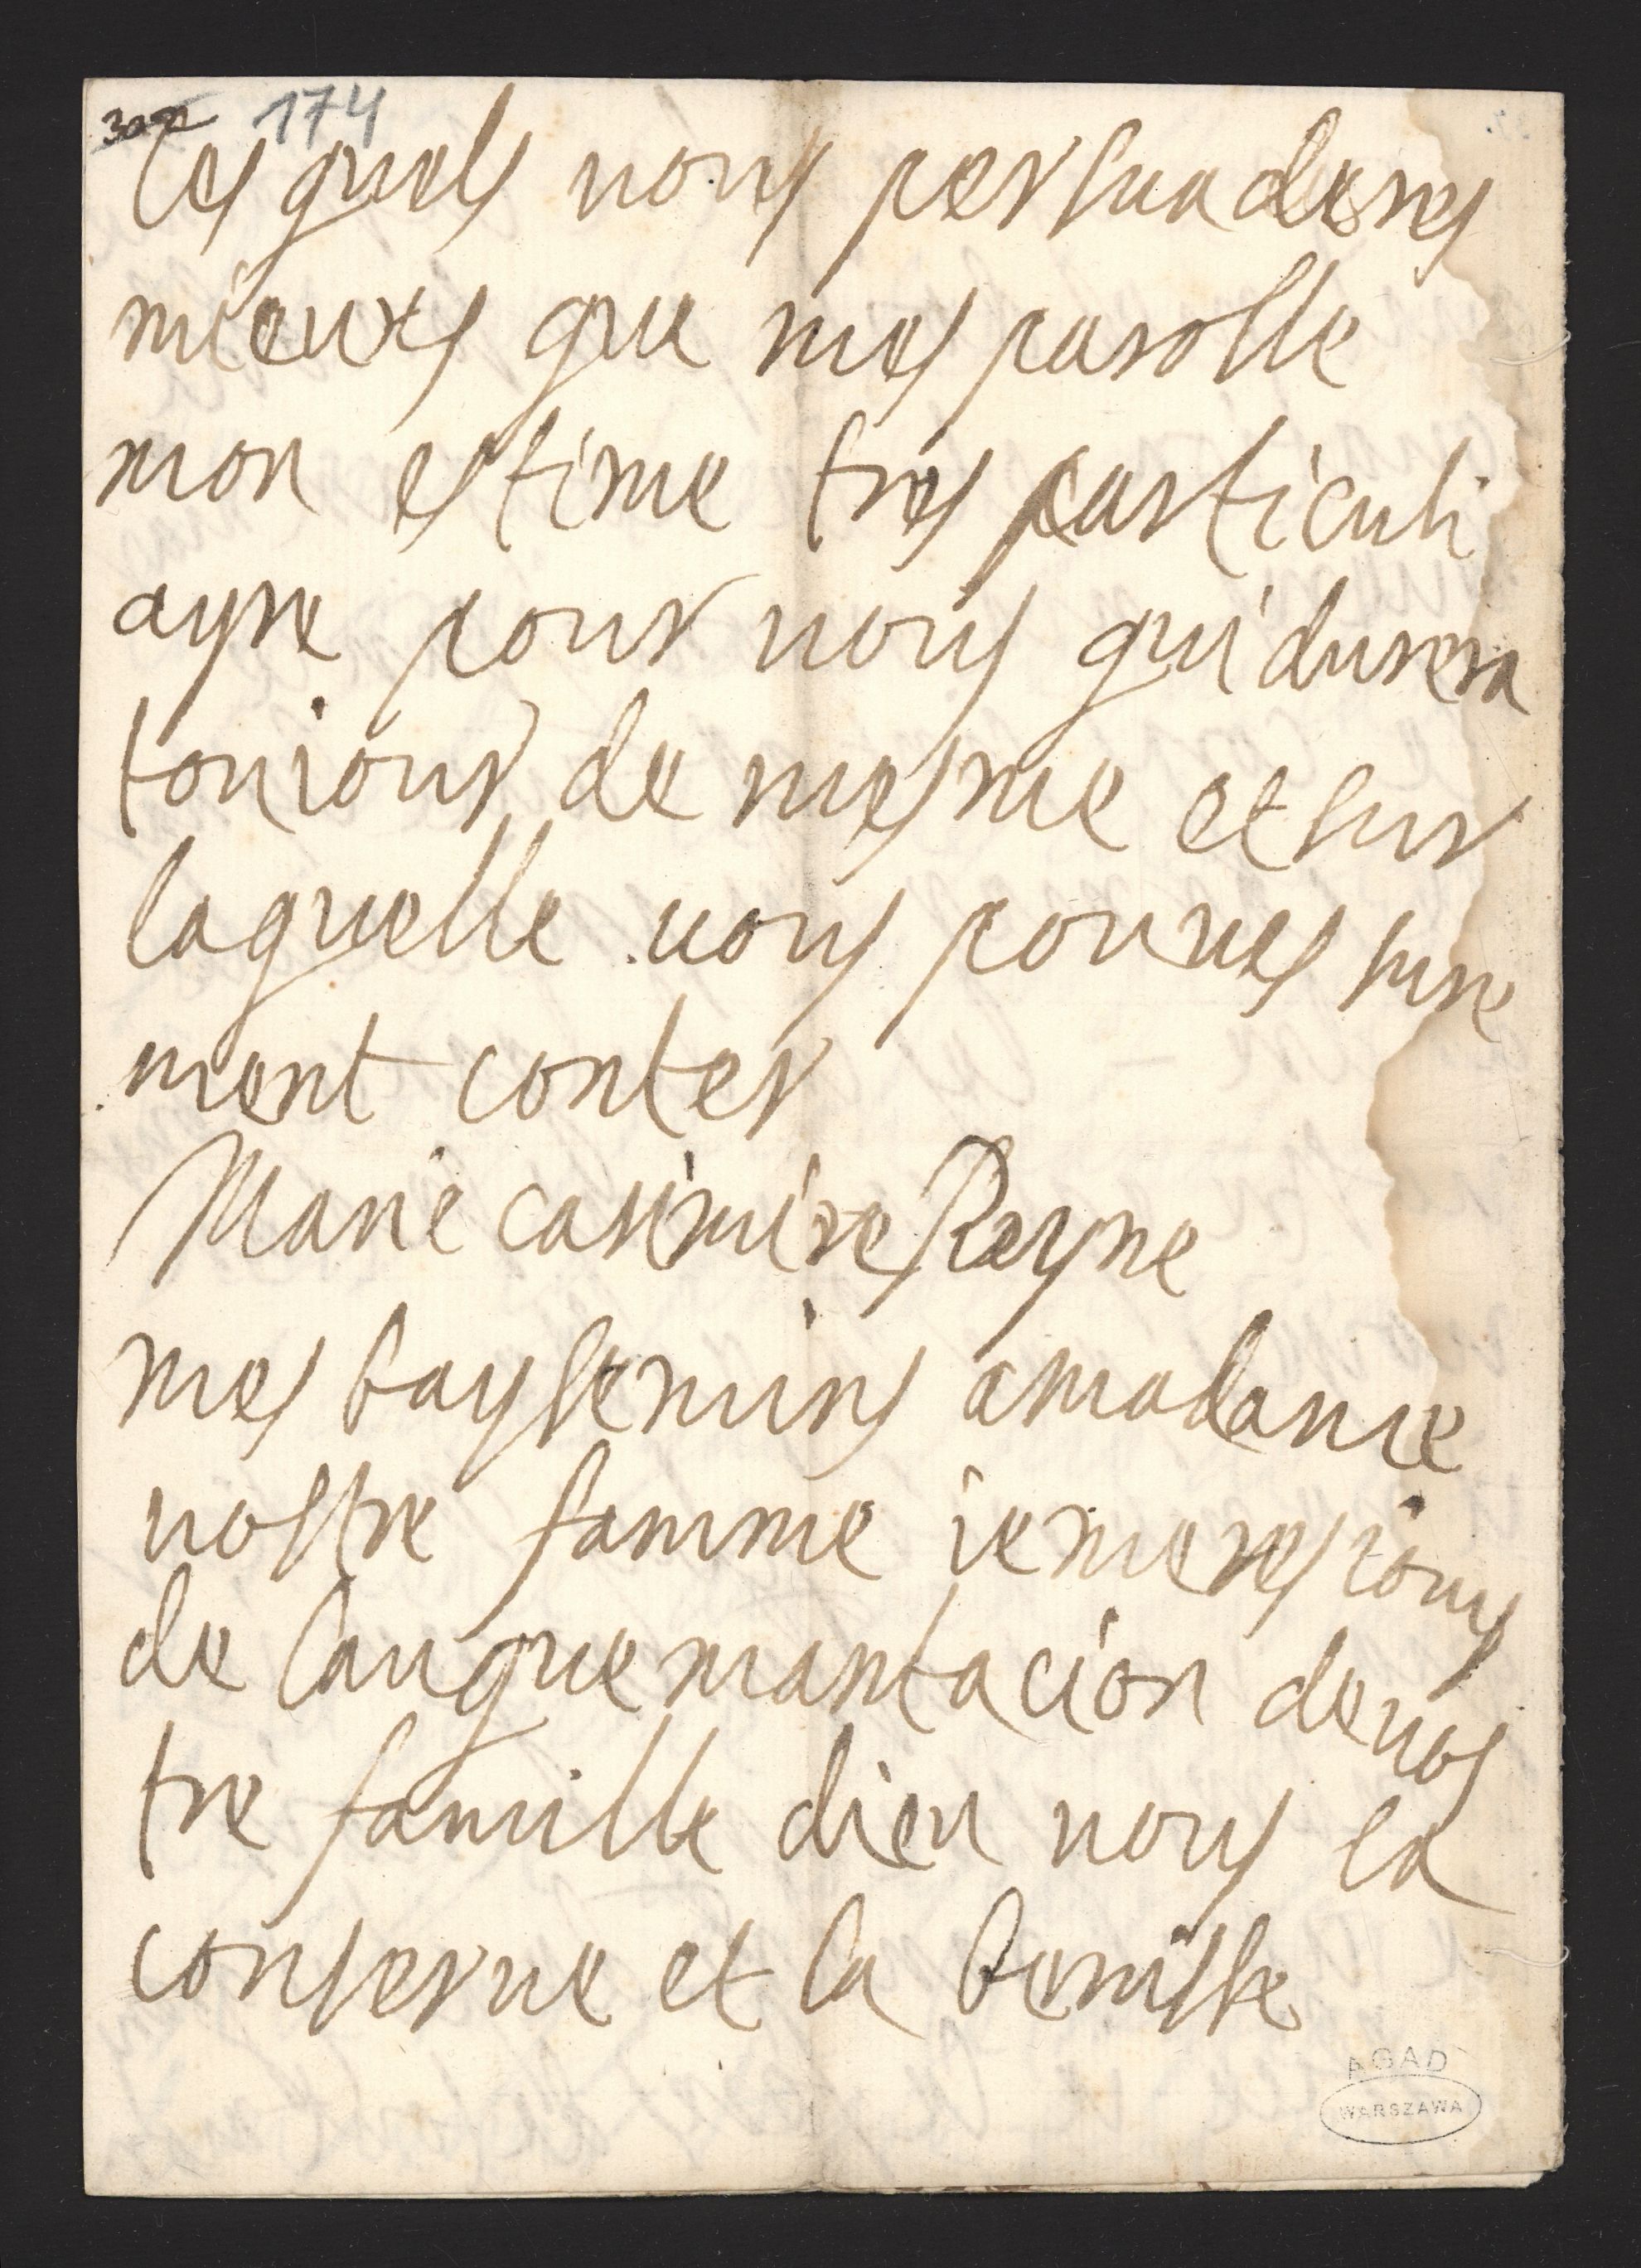 174
les quels vous persuaderes
mieuxs que mes parolle
mon estime tres particuli
ayre pour vous qui durera
toujours de mesme et sur
laquelle vous pouves sure
ment conter
Marie casimire Reyne
mes baysemins a madame
vostre famme je me resjouys
de l'auguemantacion de vos
tre famille dieu vous la
conserve et la benisse
AGAD
WARSZAWA